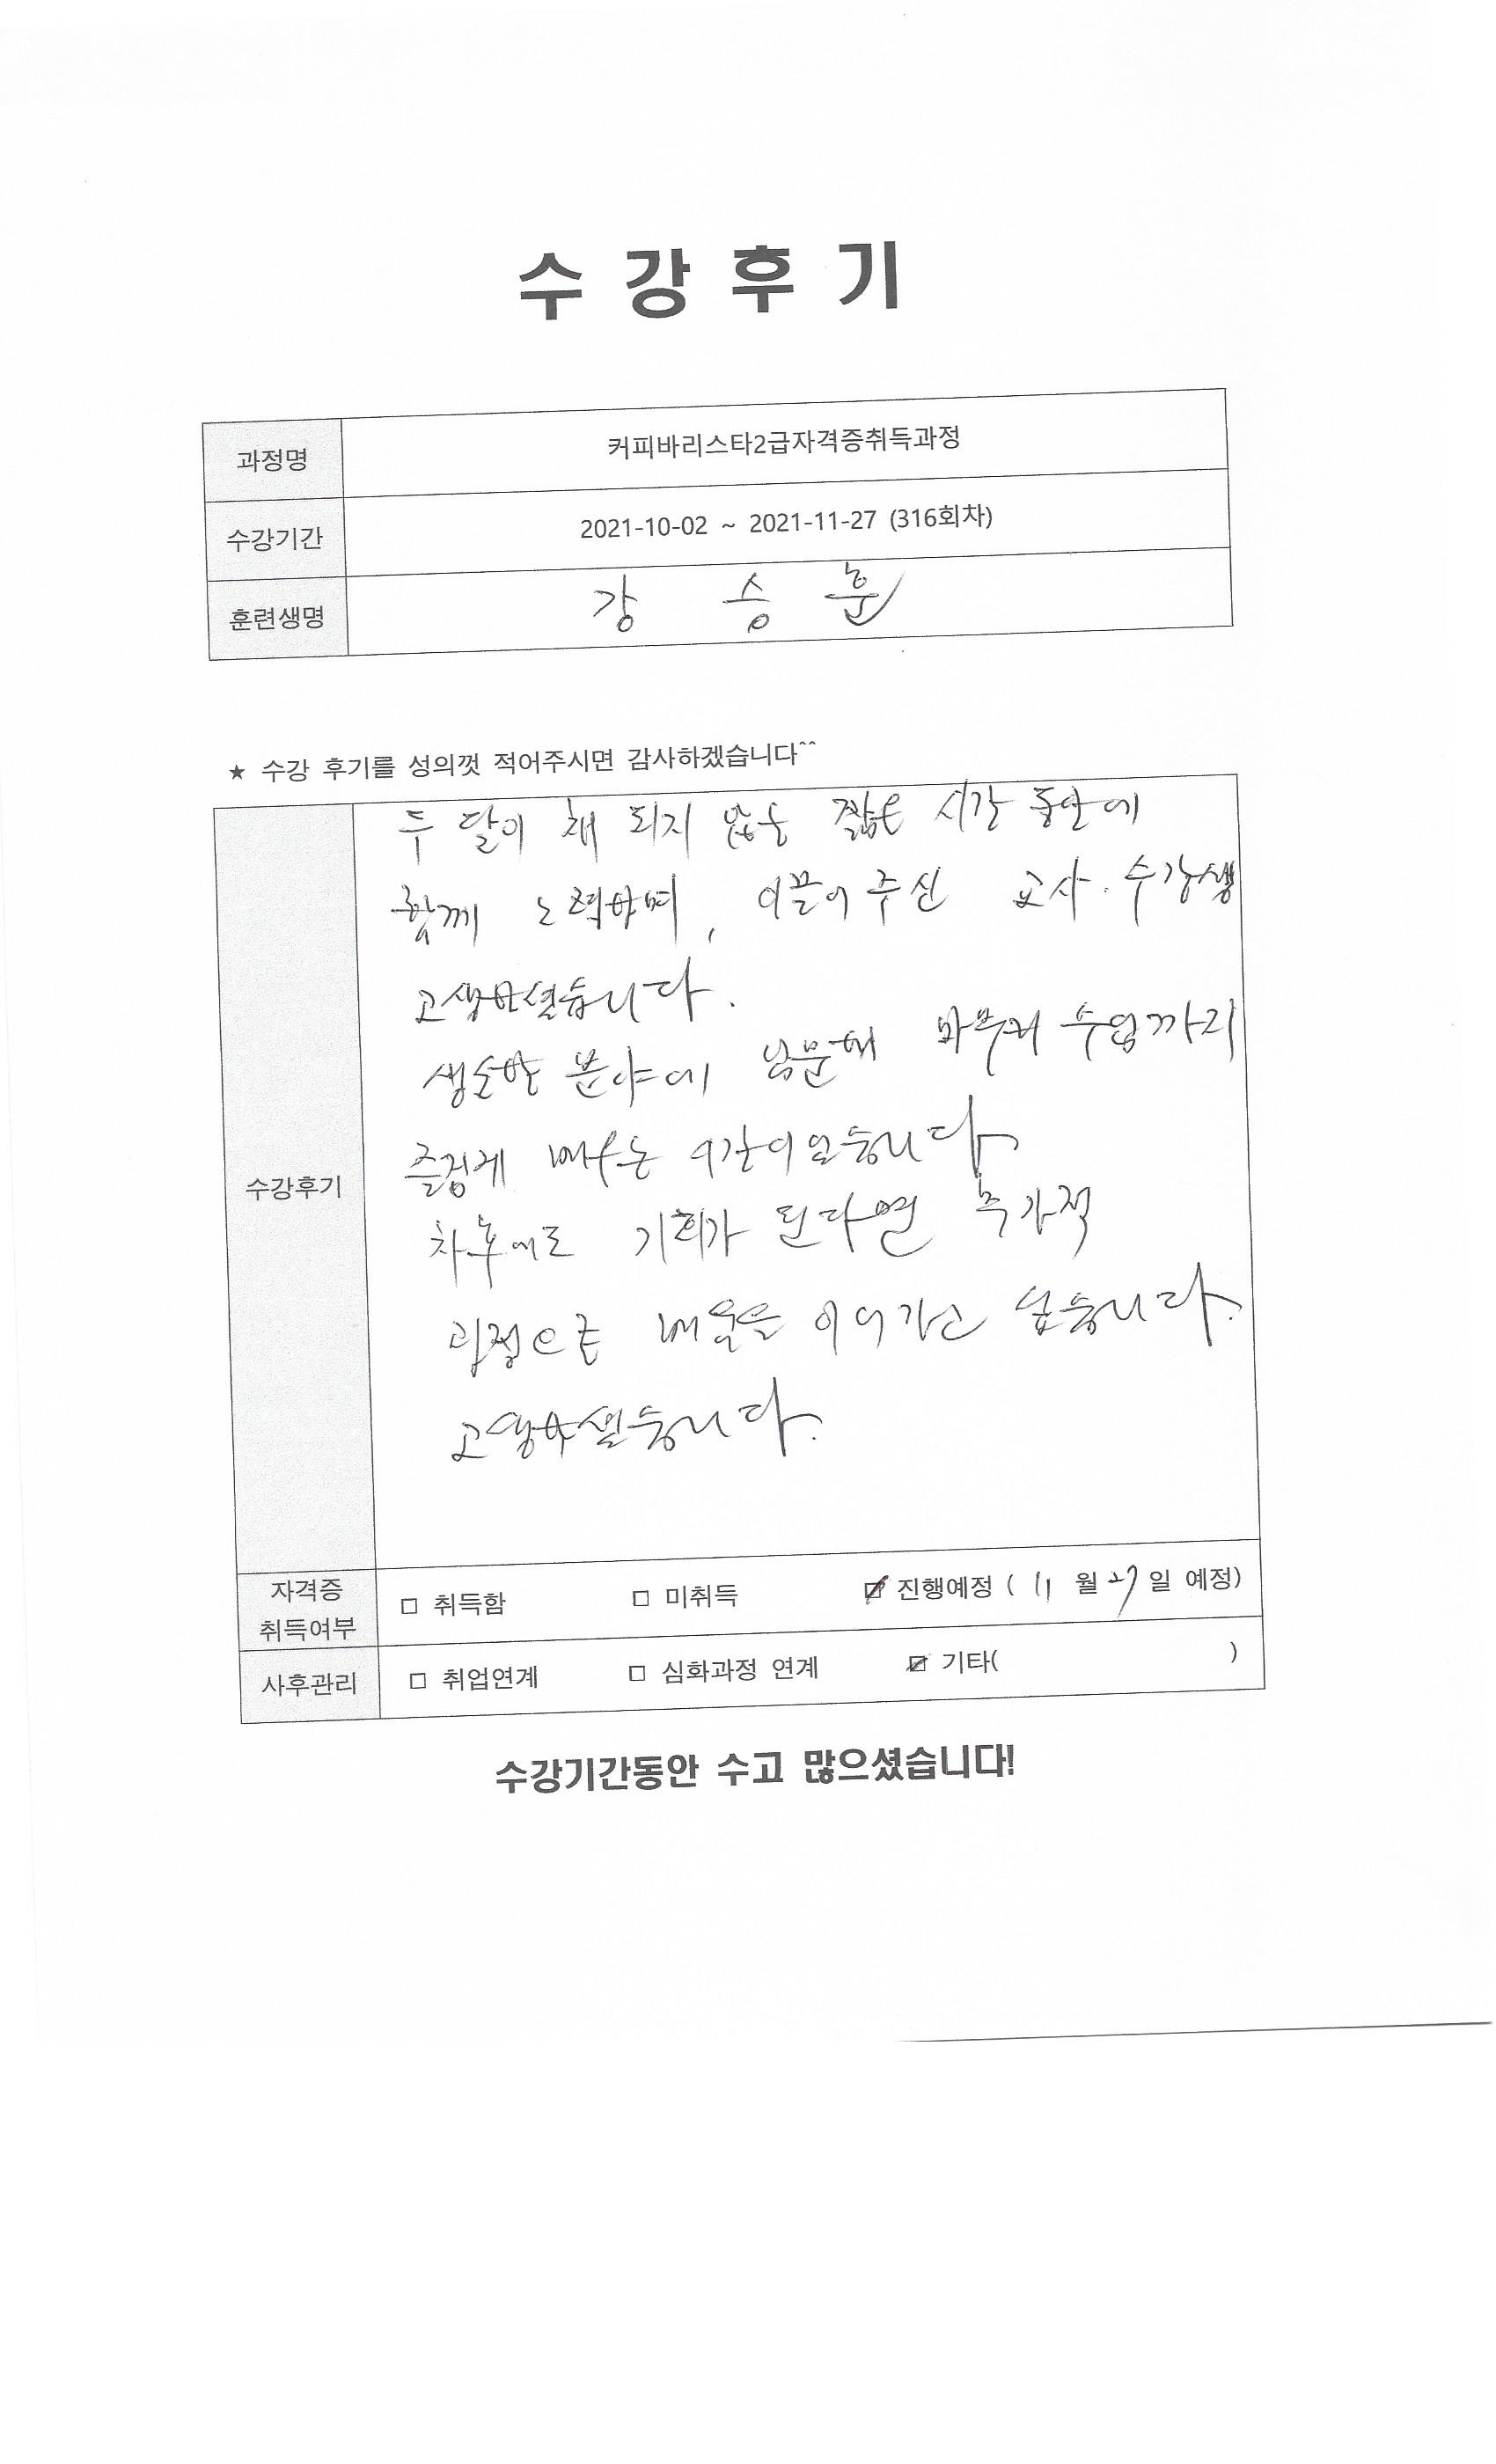 수강후기
과정명 커피바리스타2급자격증취득과정
수강기간 2021-10-02 ~ 2021-11-27 (316회차)
훈련생명 강 승 훈
★ 수강 후기를 성의껏 적어주시면 감사하겠습니다^^
수강후기
두 달이 채 되지 않는 짧은 시간 동안에
함께 노력하며, 이끌어 주신 교사. 수강생
고생하셨습니다.
생소한 분야에 입문해 마무리 수업까지
즐겁게 배우는 시간이었습니다.
차후에도 기회가 된다면 추가적
과정으로 배움을 이어가고 싶습니다.
고생하셨습니다.
자격증
취득여부
□ 취득함 □ 미취득 ☑ 진행예정 ( 11 월 27 일 예정)
사후관리 □ 취업연계 □ 심화과정 연계 ☑ 기타( )
수강기간동안 수고 많으셨습니다!